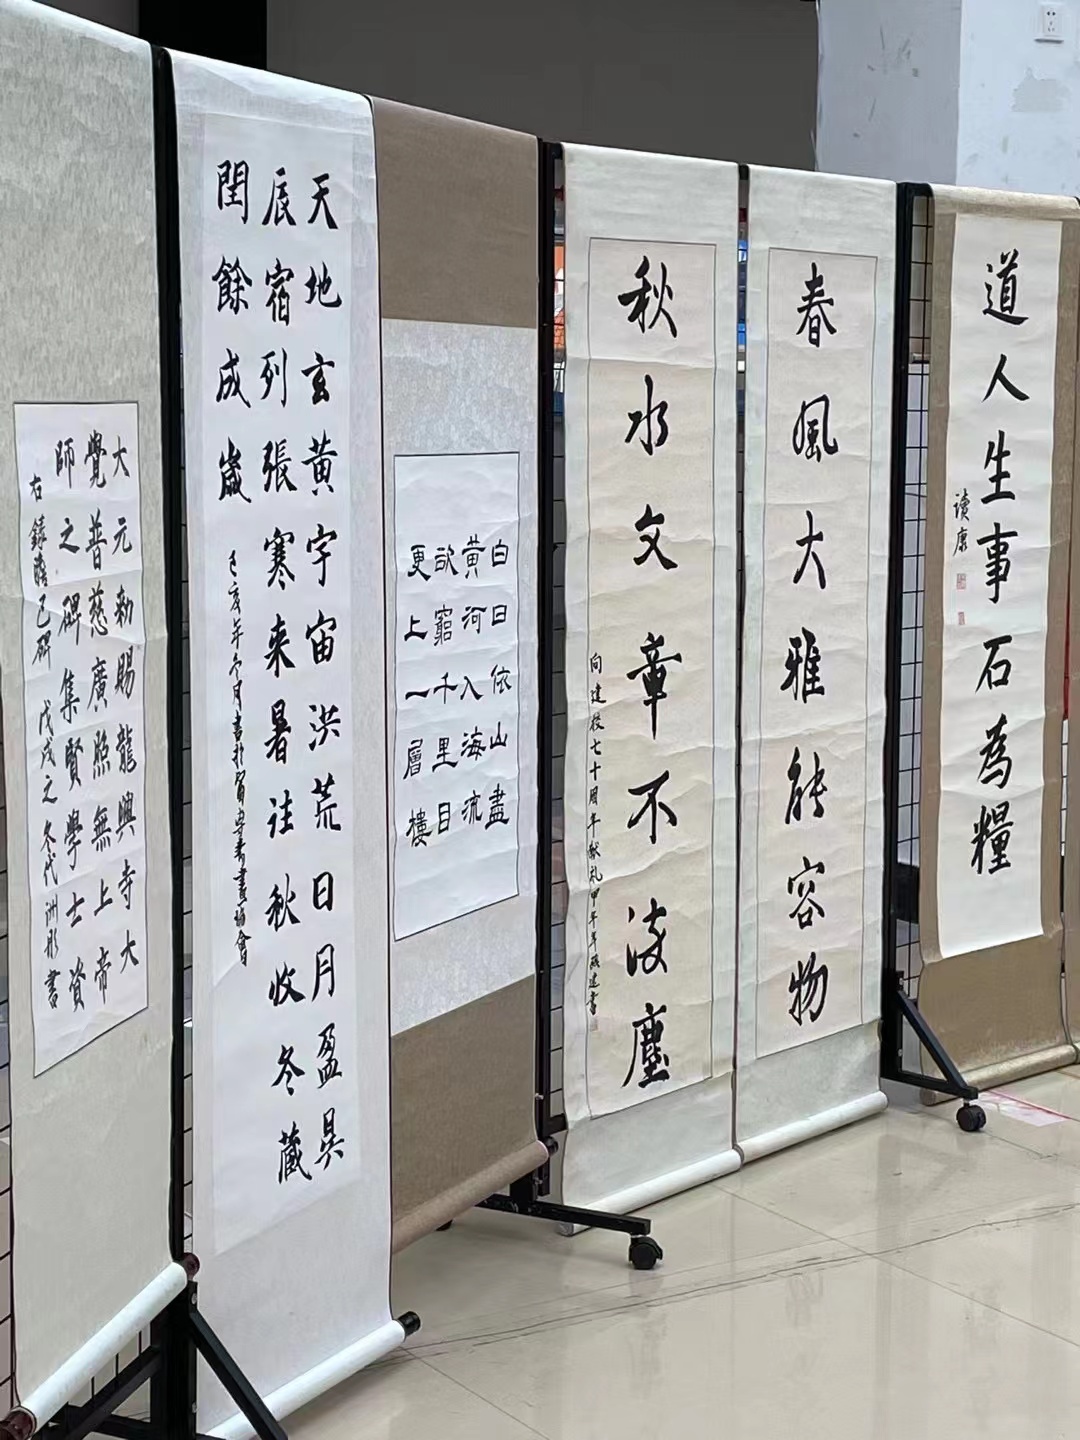 道人生事石為糧
讀康
春風大雅能容物
秋水文章不染塵
向建校七十周年献礼甲午年建書
白日依山盡
黃河入海流
欲窮千里目
更上一層樓
天地玄黃宇宙洪荒日月盈昃
辰宿列張寒来暑往秋收冬藏
閏餘成歲
己亥年冬月書於書畫協會
大元勅賜龍興寺大
覺普慈廣照無上帝
師之碑集賢學士資
右錄膽巴碑 戊戌之冬代洲彤書